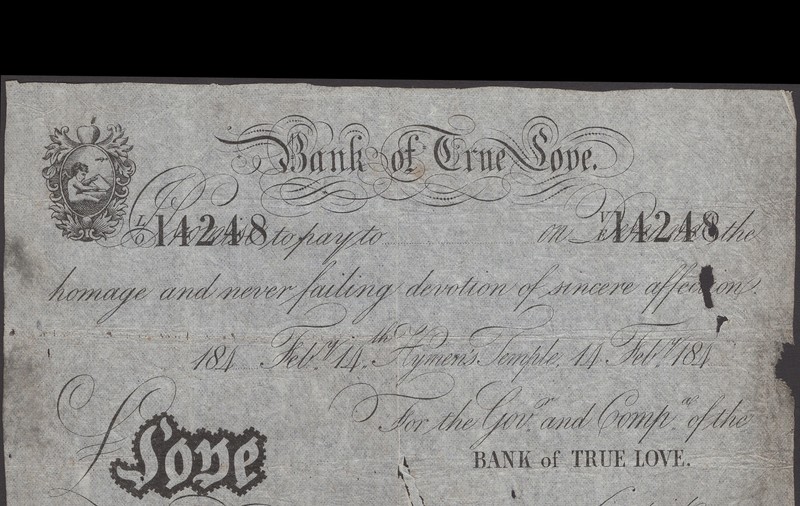 Bank of True Love.
L
O 14248 I Promise to pay to on Demand V
E 14248 the
homage and never failing devotion of sincere affection.
184 Feb.y 14.th Hymen's Temple, 14 Feb.y 184
For the Gov.r and Comp.a of the
Love
BANK of TRUE LOVE.